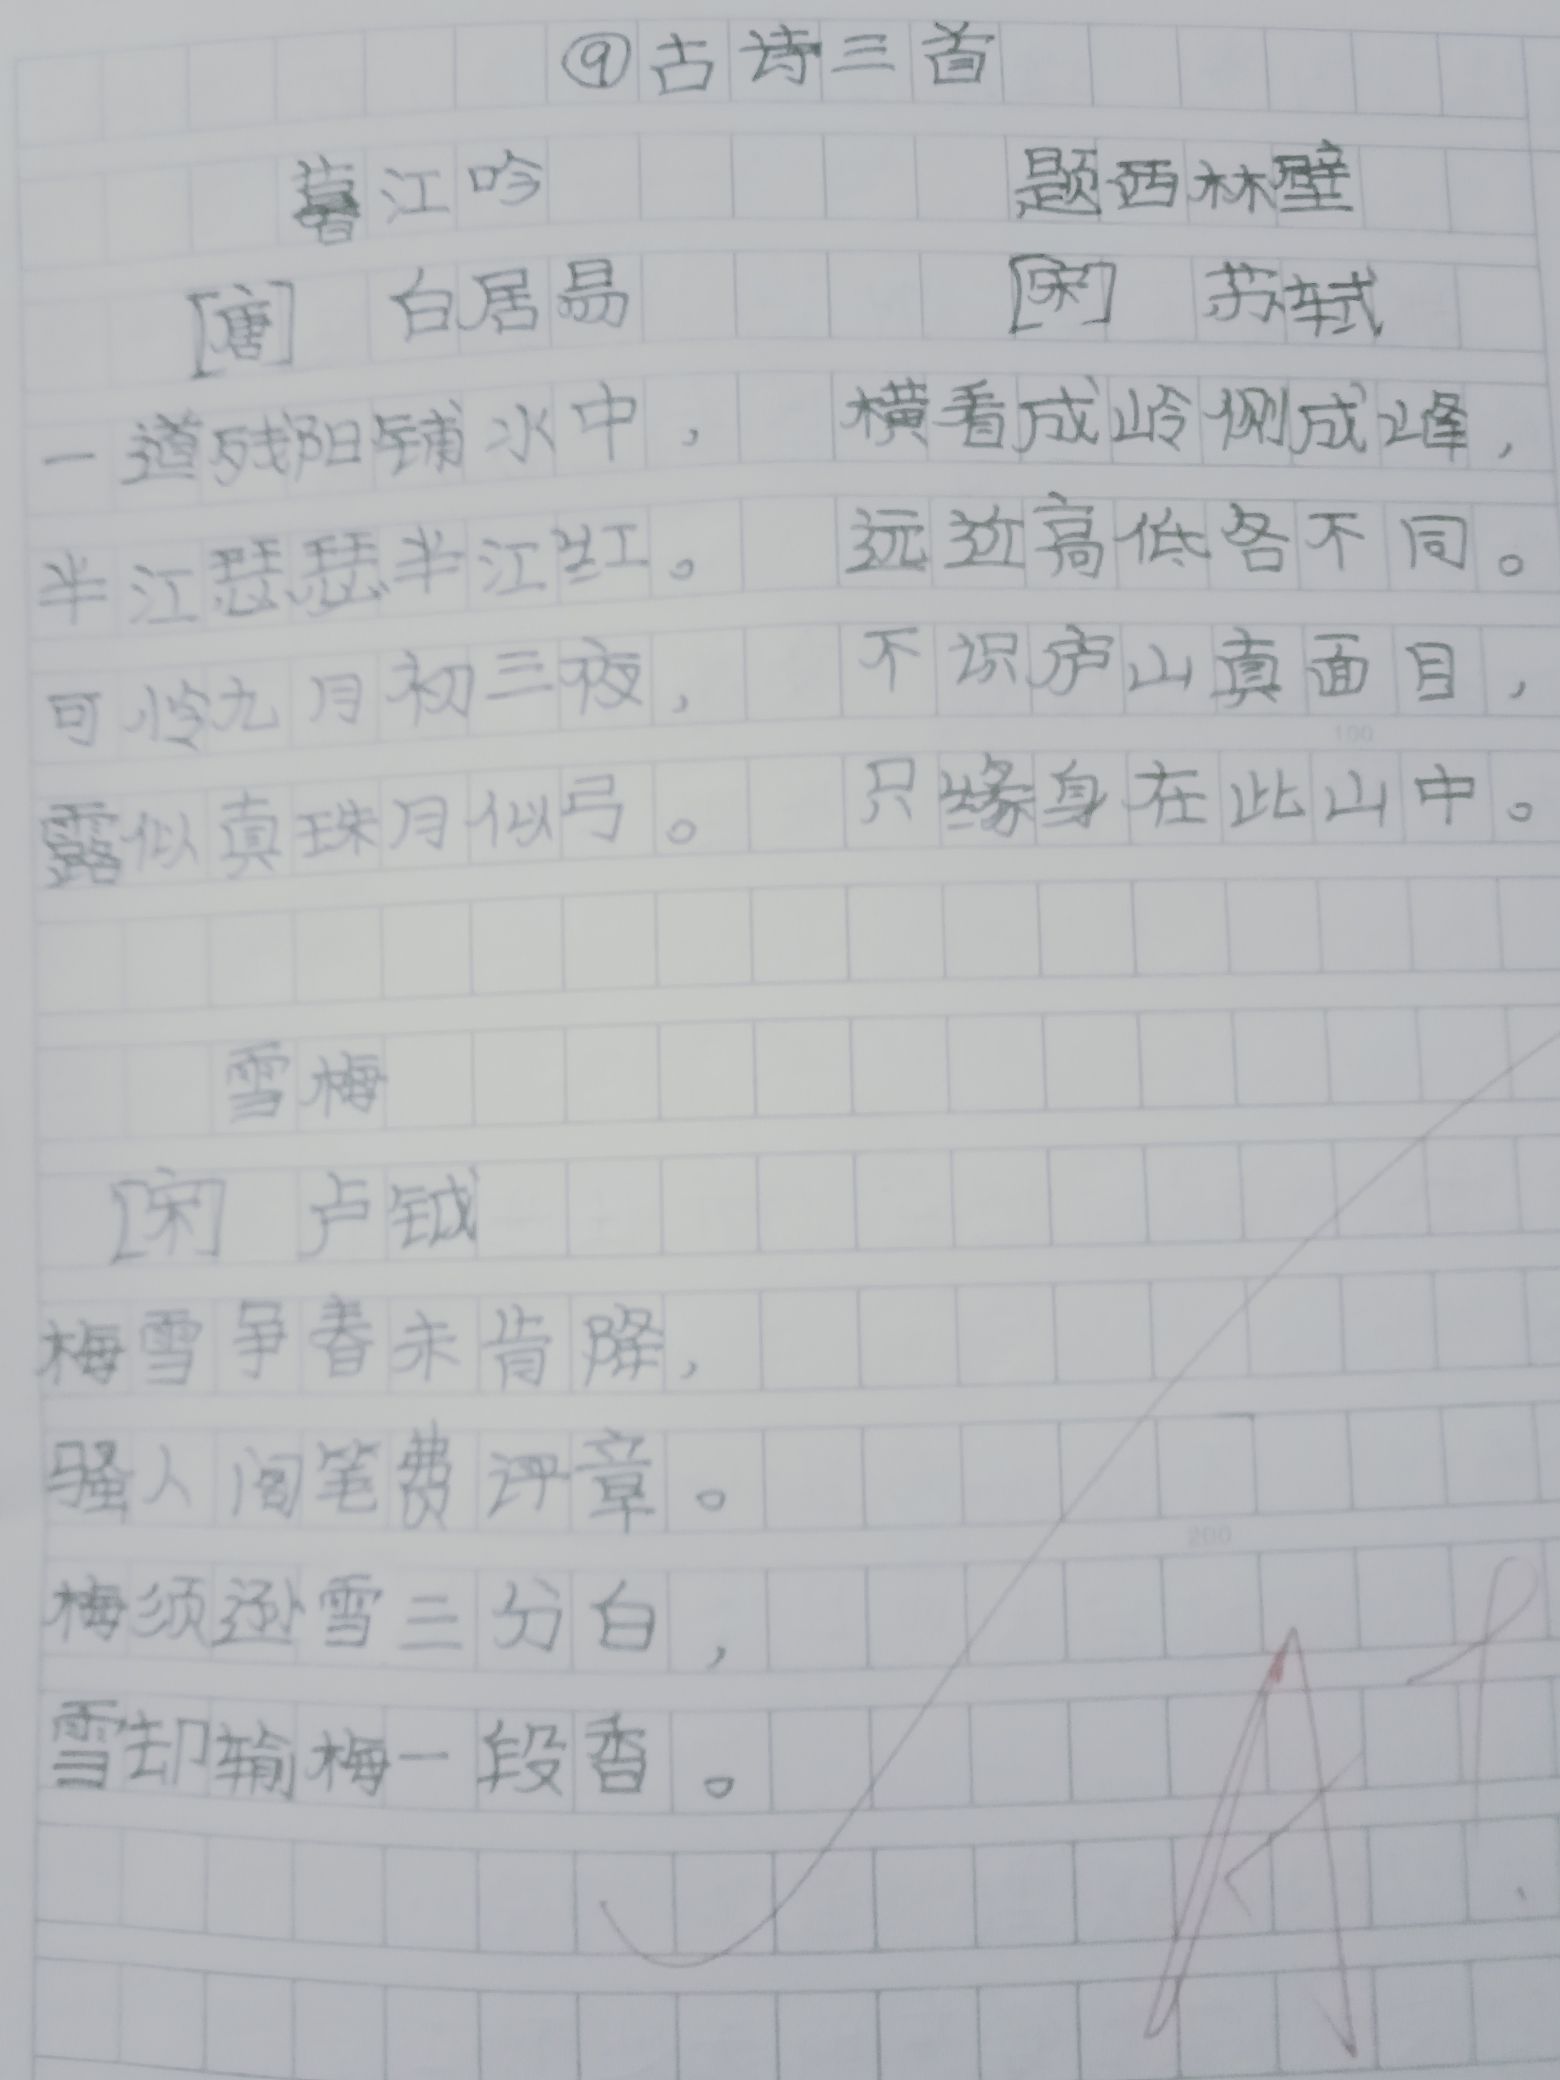 ⑨古诗三首
暮江吟
[唐] 白居易
一道残阳铺水中，
半江瑟瑟半江红。
可怜九月初三夜，
露似真珠月似弓。
题西林壁
[宋] 苏轼
横看成岭侧成峰，
远近高低各不同。
不识庐山真面目，
只缘身在此山中。
100
雪梅
[宋] 卢钺
梅雪争春未肯降，
骚人阁笔费评章。
200
梅须逊雪三分白，
雪却输梅一段香。
A+